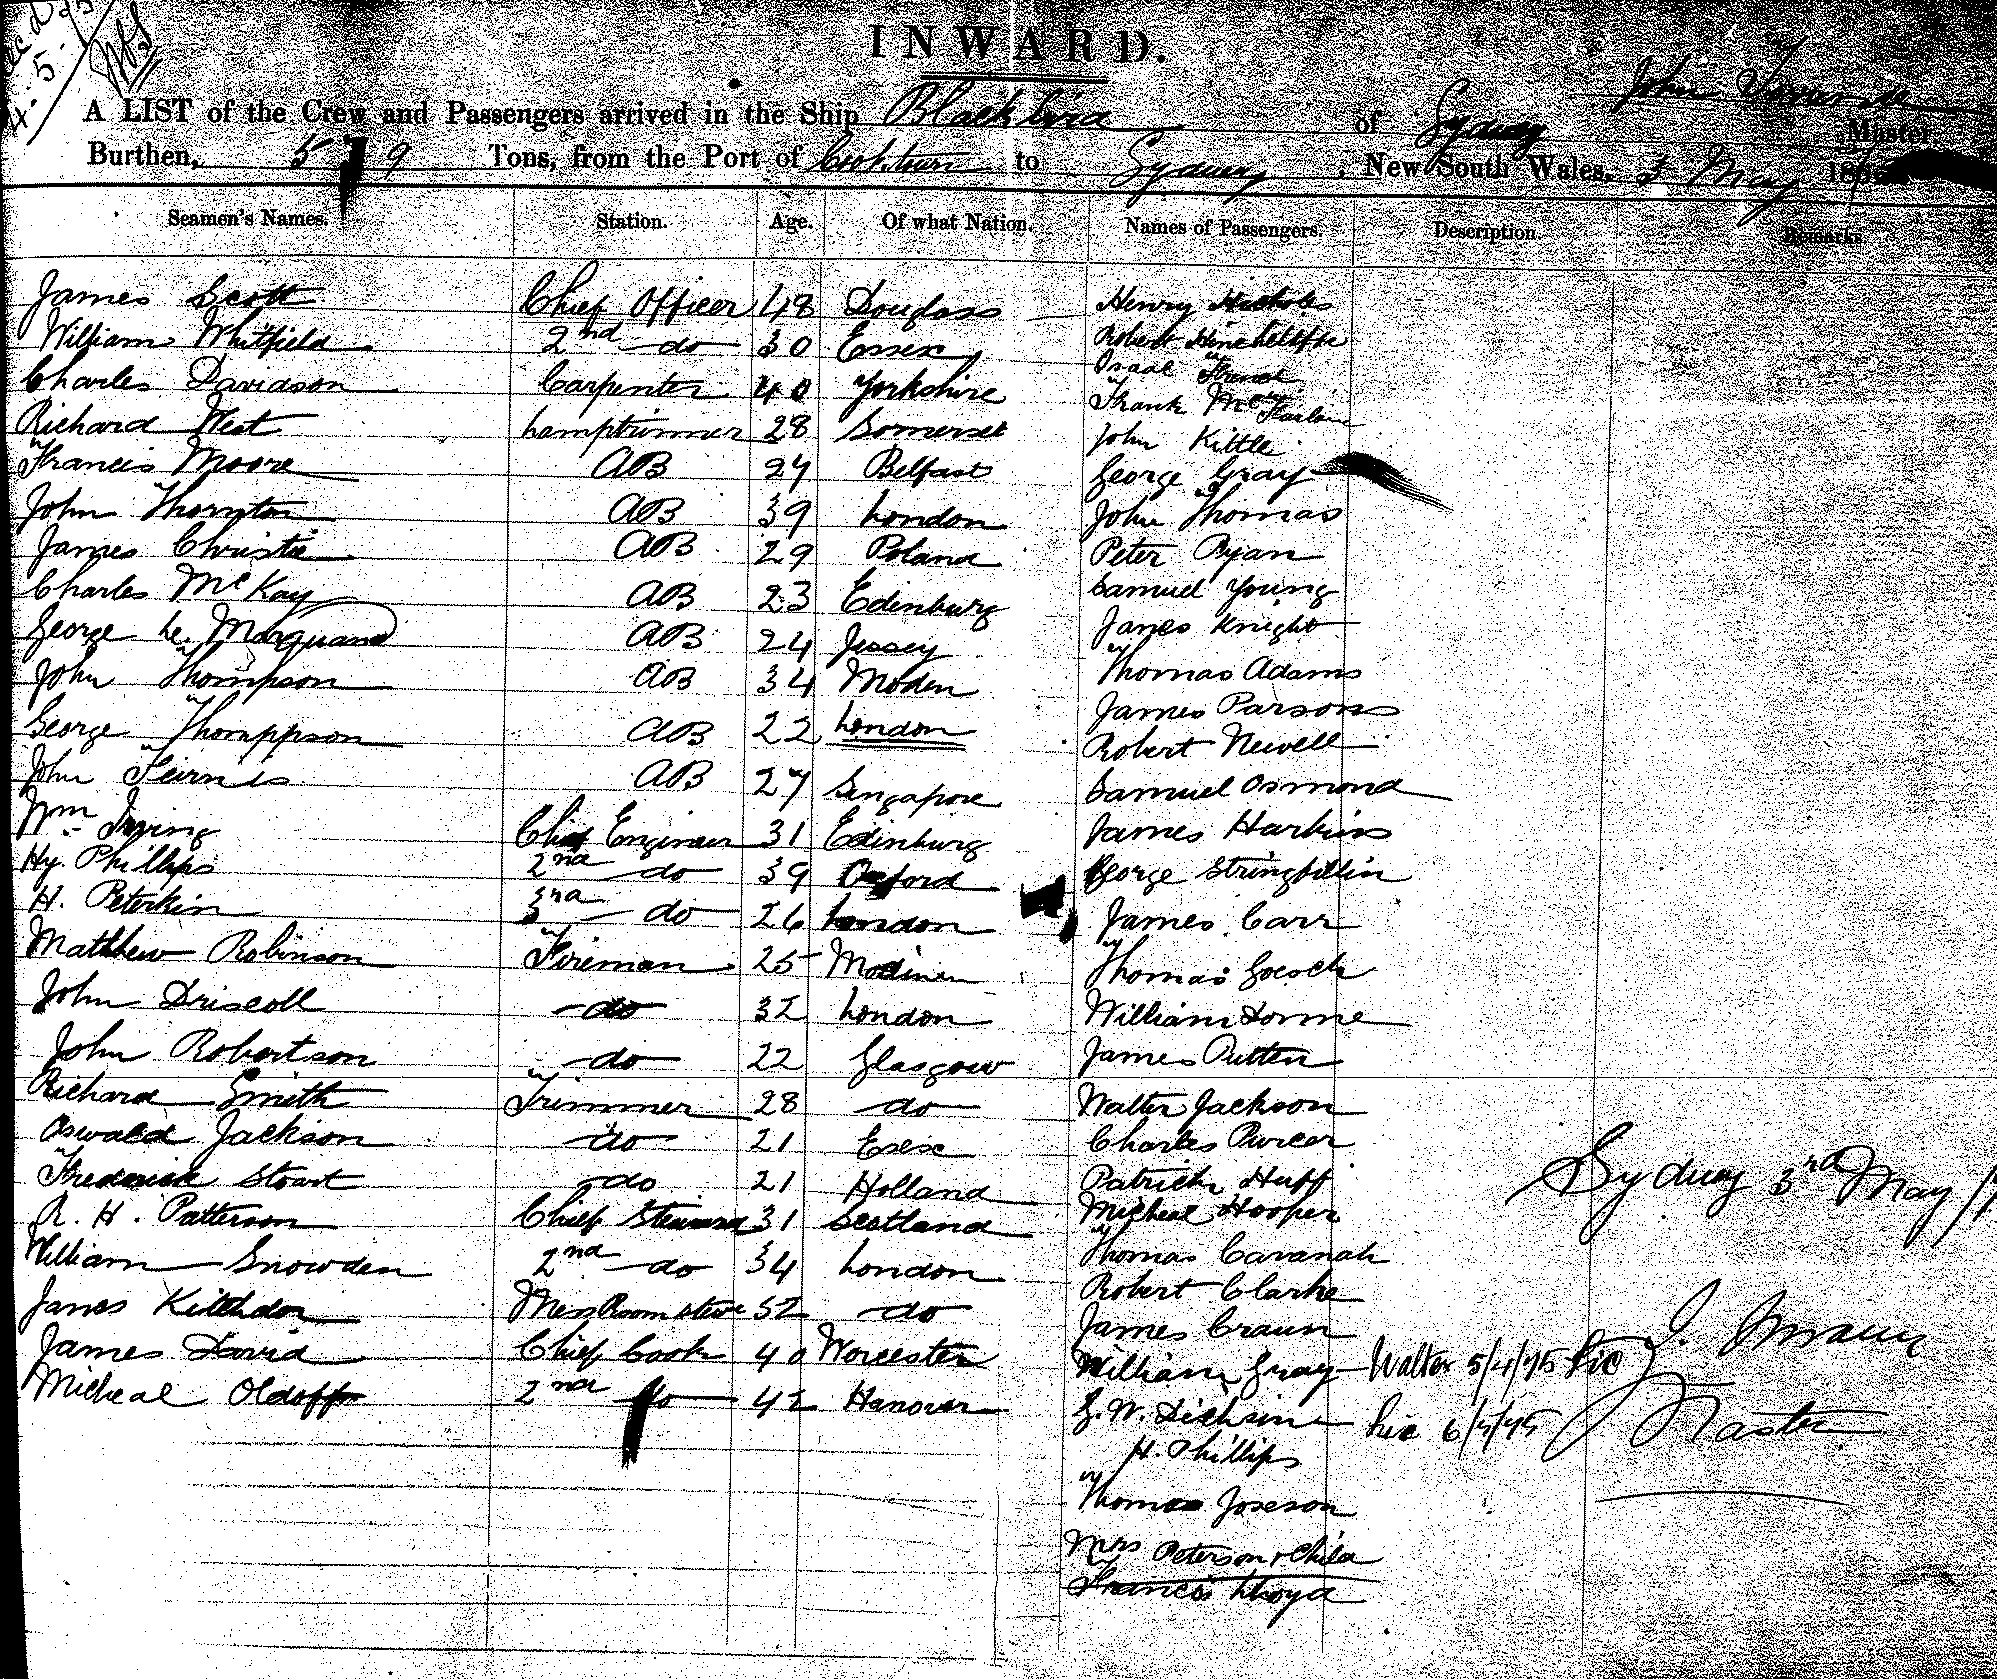 INWARD.
A LIST of the Crew and Passengers arrived in the Ship Blackbird of Sydney John Master
Burthen, 5 9 Tons, from the Port of Cooktown to Sydney, New South Wales. 3 May 18
Seamen's Names. Station. Age. Of what Nation. Names of Passengers. Description Remarks
James Scott Chief Officer 48 Douglass Henry Nicholes
William Whitfield 2nd do 30 Essex Robert Hinchcliffe
Charles Davidson Carpenter 40 Yorkshire Isaac
Richard West Lamptrimmer 28 Somerset Frank McFarlane
Francis Moore AB 27 Belfast John Kittle
George Gray
John Thornton AB 39 London John Thomas
James Christie AB 29 Poland Peter Ryan
Charles McKay AB 23 Edinburg Samuel Young
George Le Marquand AB 24 Jersey James Knight
John Thompson AB 34 Moden Thomas Adams
George Thomppson AB 22 London James Parsons
Robert Newell
John AB 27 Singapore Samuel Osmond
Wm Irving Chief Engineer 31 Edinburg James Harkins
Hy. Phillips 2nd do 39 Oxford George Stringfellin
H. Peterkin 3rd do 26 London James Carr
Matthew Robinson Fireman 25 Thomas
John Driscoll do 32 London William
John Robertson do 22 Glasgow James Rutten
Richard Smith Trimmer 28 do Walter Jackson
Oswald Jackson do 21 Essex Charles
Frederick Stoart do 21 Holland Patrick Huff
Sydney 3rd May
R. H. Patterson Chief Steward 31 Scotland Micheal Hooper
William Snowden 2nd do 34 London Thomas Cavanah
Robert Clarke
James Mess Room 52 do James Craun
James David Chief Cook 40 Worcester William Gray Walter 5/4/75 Lic
Micheal Oldoff 2nd do 42 Hanover G. W. Lic 6/4/75 Master
H. Phillips
Thomas Joseson
Mrs Peterson & Child
Francis Lloyd